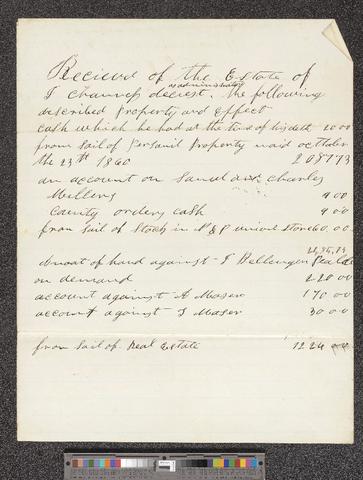 Recieved of the Estate of
as administrator
J Chauncy deceest. The following
described Property and Effect
Cash which he had at the time of his deth 20 00
from Sail of Personil Property maid October
the 23th 1860 208 773
an account on Samuel and Charles
Mullens 9 00
County orders cash 9 00
from Sail of Stock in N & P union Store 60.00
a noat of hand against J Bellenger
on demand 220 00
account against A Maser 170 00
account against J Maser 30 00
from Sail of Real Estate 1224 00